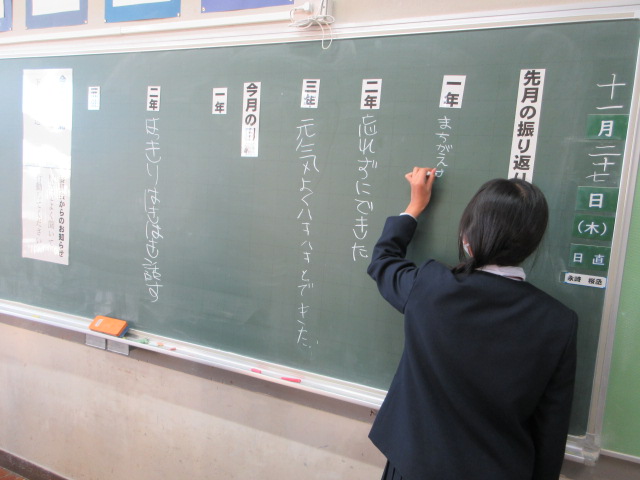 十一月二十七日(木)
日直
先月の振り返り
一年
まちがえ
二年
忘れずにできた
三年
元気よくハキハキとできた。
今月の目
一年
二年
はっきりはきはきと話す
三
からのお知らせ